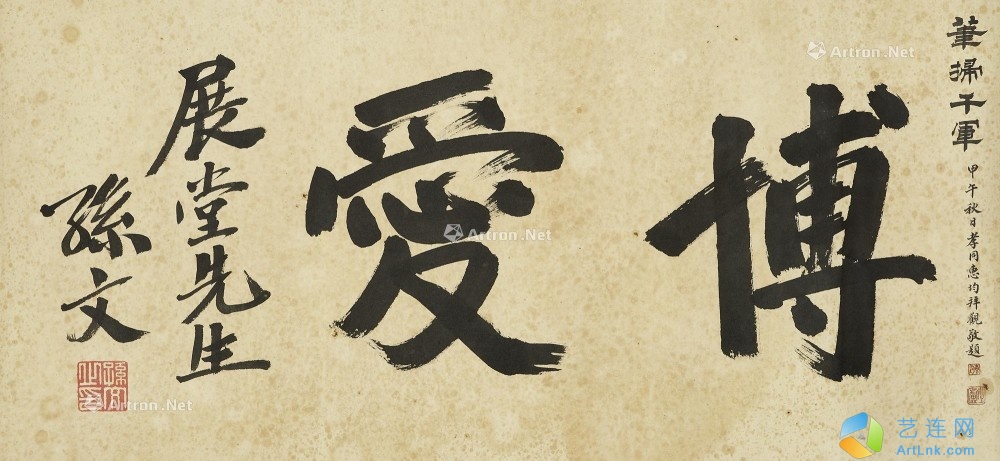 筆掃千軍
甲午秋日孝同惠均拜觀敬題
博愛
展堂先生
孫文
孫文之印
Artron.Net
Artron.Net
Artron.Net
艺连网
ArtLnk.com